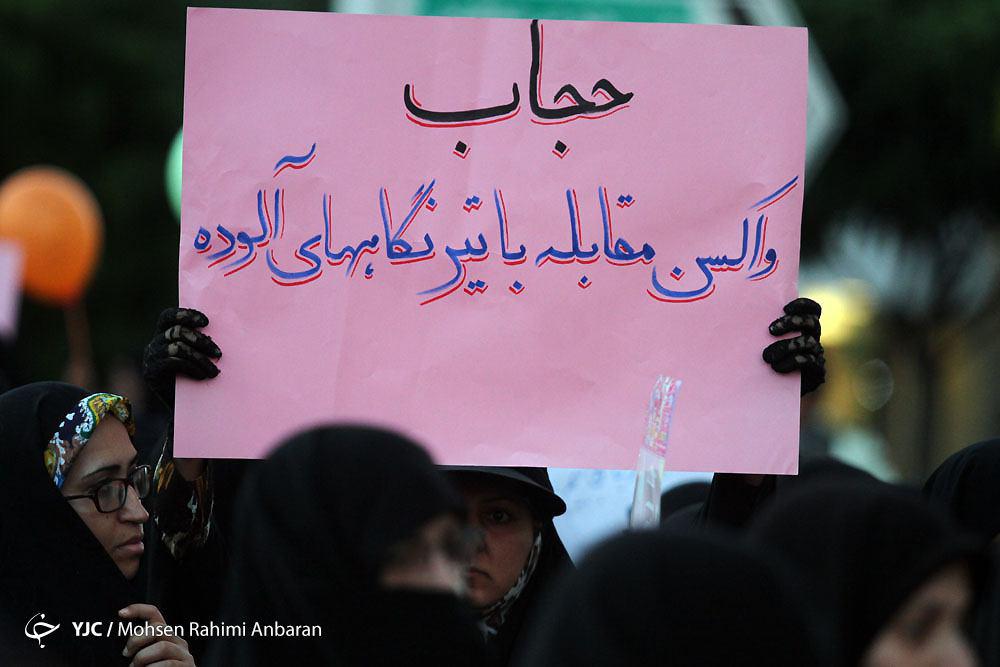 حجاب
واکسن مقابله با تیر نگاههای آلوده
YJC / Mohsen Rahimi Anbaran